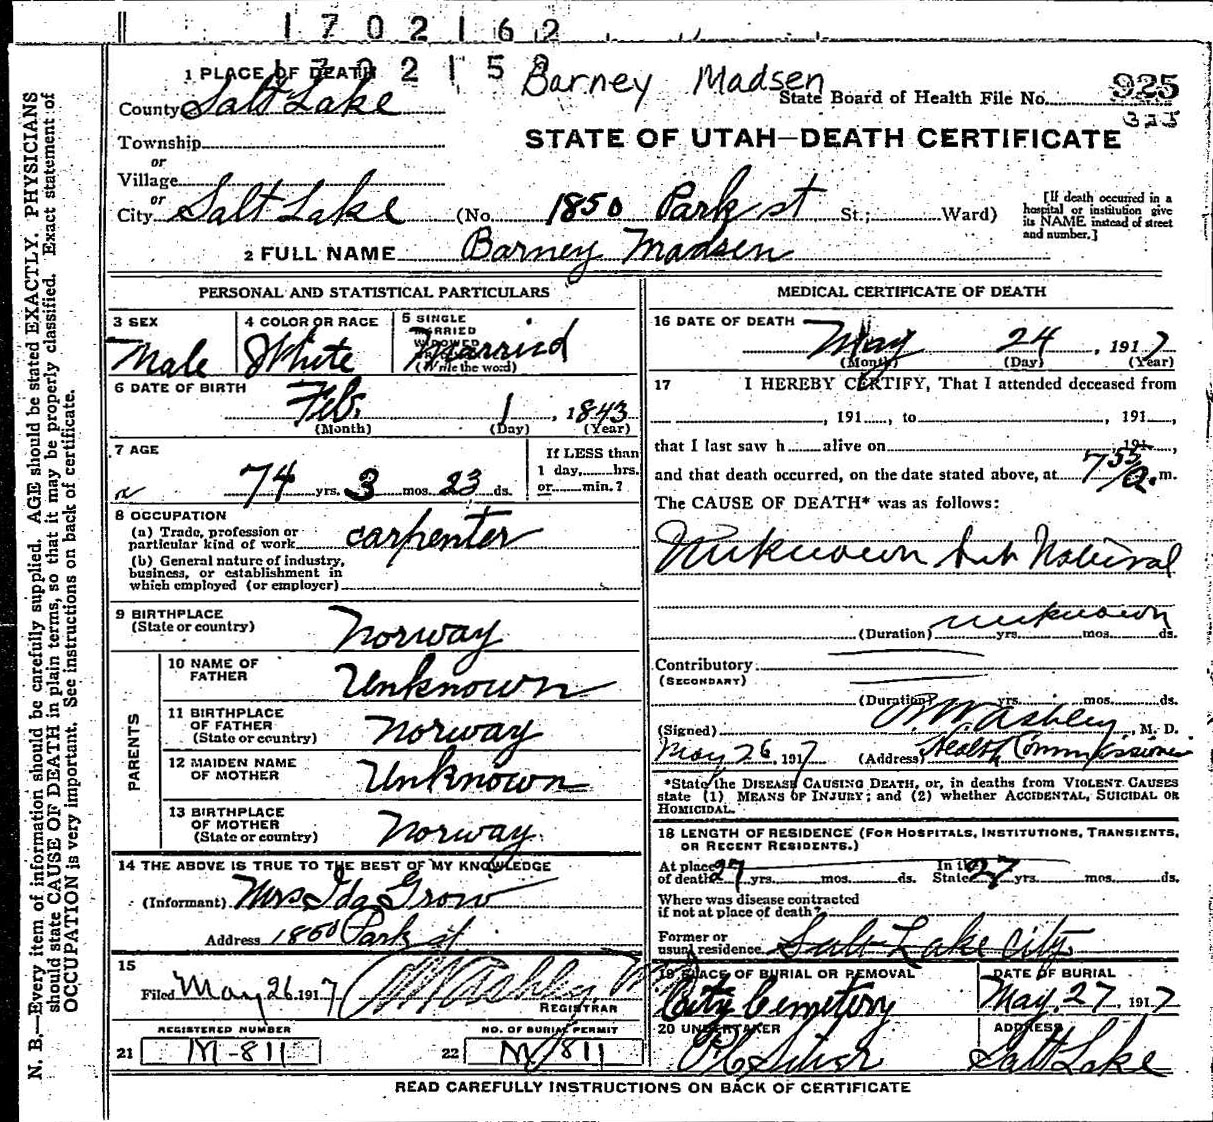 1702162
1702152
1 PLACE OF DEATH
Barney Madsen
County Salt Lake
State Board of Health File No. 925
325
STATE OF UTAH—DEATH CERTIFICATE
Township
or
Village
or
City Salt Lake (No. 1850 Park st St.; Ward)
[If death occurred in a
hospital or institution give
its NAME instead of street
and number.]
2 FULL NAME Barney Madsen
PERSONAL AND STATISTICAL PARTICULARS
3 SEX
Male
4 COLOR OR RACE
White
5 SINGLE
MARRIED
WIDOWED
Married
(Write the word)
6 DATE OF BIRTH
Feb. 1, 1843
(Month) (Day) (Year)
7 AGE
74 yrs. 3 mos. 23 ds.
If LESS than
1 day, hrs.
or min.?
8 OCCUPATION
(a) Trade, profession or
particular kind of work carpenter
(b) General nature of industry,
business, or establishment in
which employed (or employer)
9 BIRTHPLACE
(State or country) Norway
PARENTS
10 NAME OF
FATHER Unknown
11 BIRTHPLACE
OF FATHER
(State or country) Norway
12 MAIDEN NAME
OF MOTHER Unknown
13 BIRTHPLACE
OF MOTHER
(State or country) Norway
14 THE ABOVE IS TRUE TO THE BEST OF MY KNOWLEDGE
(Informant) Mrs Ida Grow
Address 1850 Park st
15
Filed May 26 1917
REGISTRAR
REGISTERED NUMBER
21 M-811
NO. OF BURIAL PERMIT
22 M/811
MEDICAL CERTIFICATE OF DEATH
16 DATE OF DEATH
May 24, 1917
(Month) (Day) (Year)
17 I HEREBY CERTIFY, That I attended deceased from
, 191 , to , 191 ,
that I last saw h alive on 191
and that death occurred, on the date stated above, at 7 55/a. m.
The CAUSE OF DEATH* was as follows:
Unknown but Natural
unknown
(Duration) yrs. mos. ds.
Contributory
(SECONDARY)
(Duration) yrs. mos. ds.
(Signed) Ashley, M. D.
May 26, 1917 (Address) Health Commissioner
*State the DISEASE CAUSING DEATH, or, in deaths from VIOLENT CAUSES
state (1) MEANS OF INJURY; and (2) whether ACCIDENTAL, SUICIDAL OR
HOMICIDAL.
18 LENGTH OF RESIDENCE (FOR HOSPITALS, INSTITUTIONS, TRANSIENTS,
OR RECENT RESIDENTS.)
At place
of death 27 yrs. mos. ds. In the
State 27 yrs. mos. ds.
Where was disease contracted
if not at place of death?
Former or
usual residence Salt Lake City
19 PLACE OF BURIAL OR REMOVAL
City Cemetery
DATE OF BURIAL
May 27, 1917
20 UNDERTAKER
ADDRESS
Salt Lake
READ CAREFULLY INSTRUCTIONS ON BACK OF CERTIFICATE
N. B.—Every item of information should be carefully supplied. AGE should be stated EXACTLY. PHYSICIANS
should state CAUSE OF DEATH in plain terms, so that it may be properly classified. Exact statement of
OCCUPATION is very important. See instructions on back of certificate.